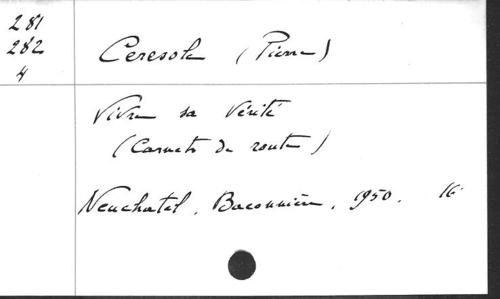 281
282
4
Ceresole (Pierre)
Vivre sa vérité
(Carnets de route)
Neuchatel, Baconnière, 1950. 16